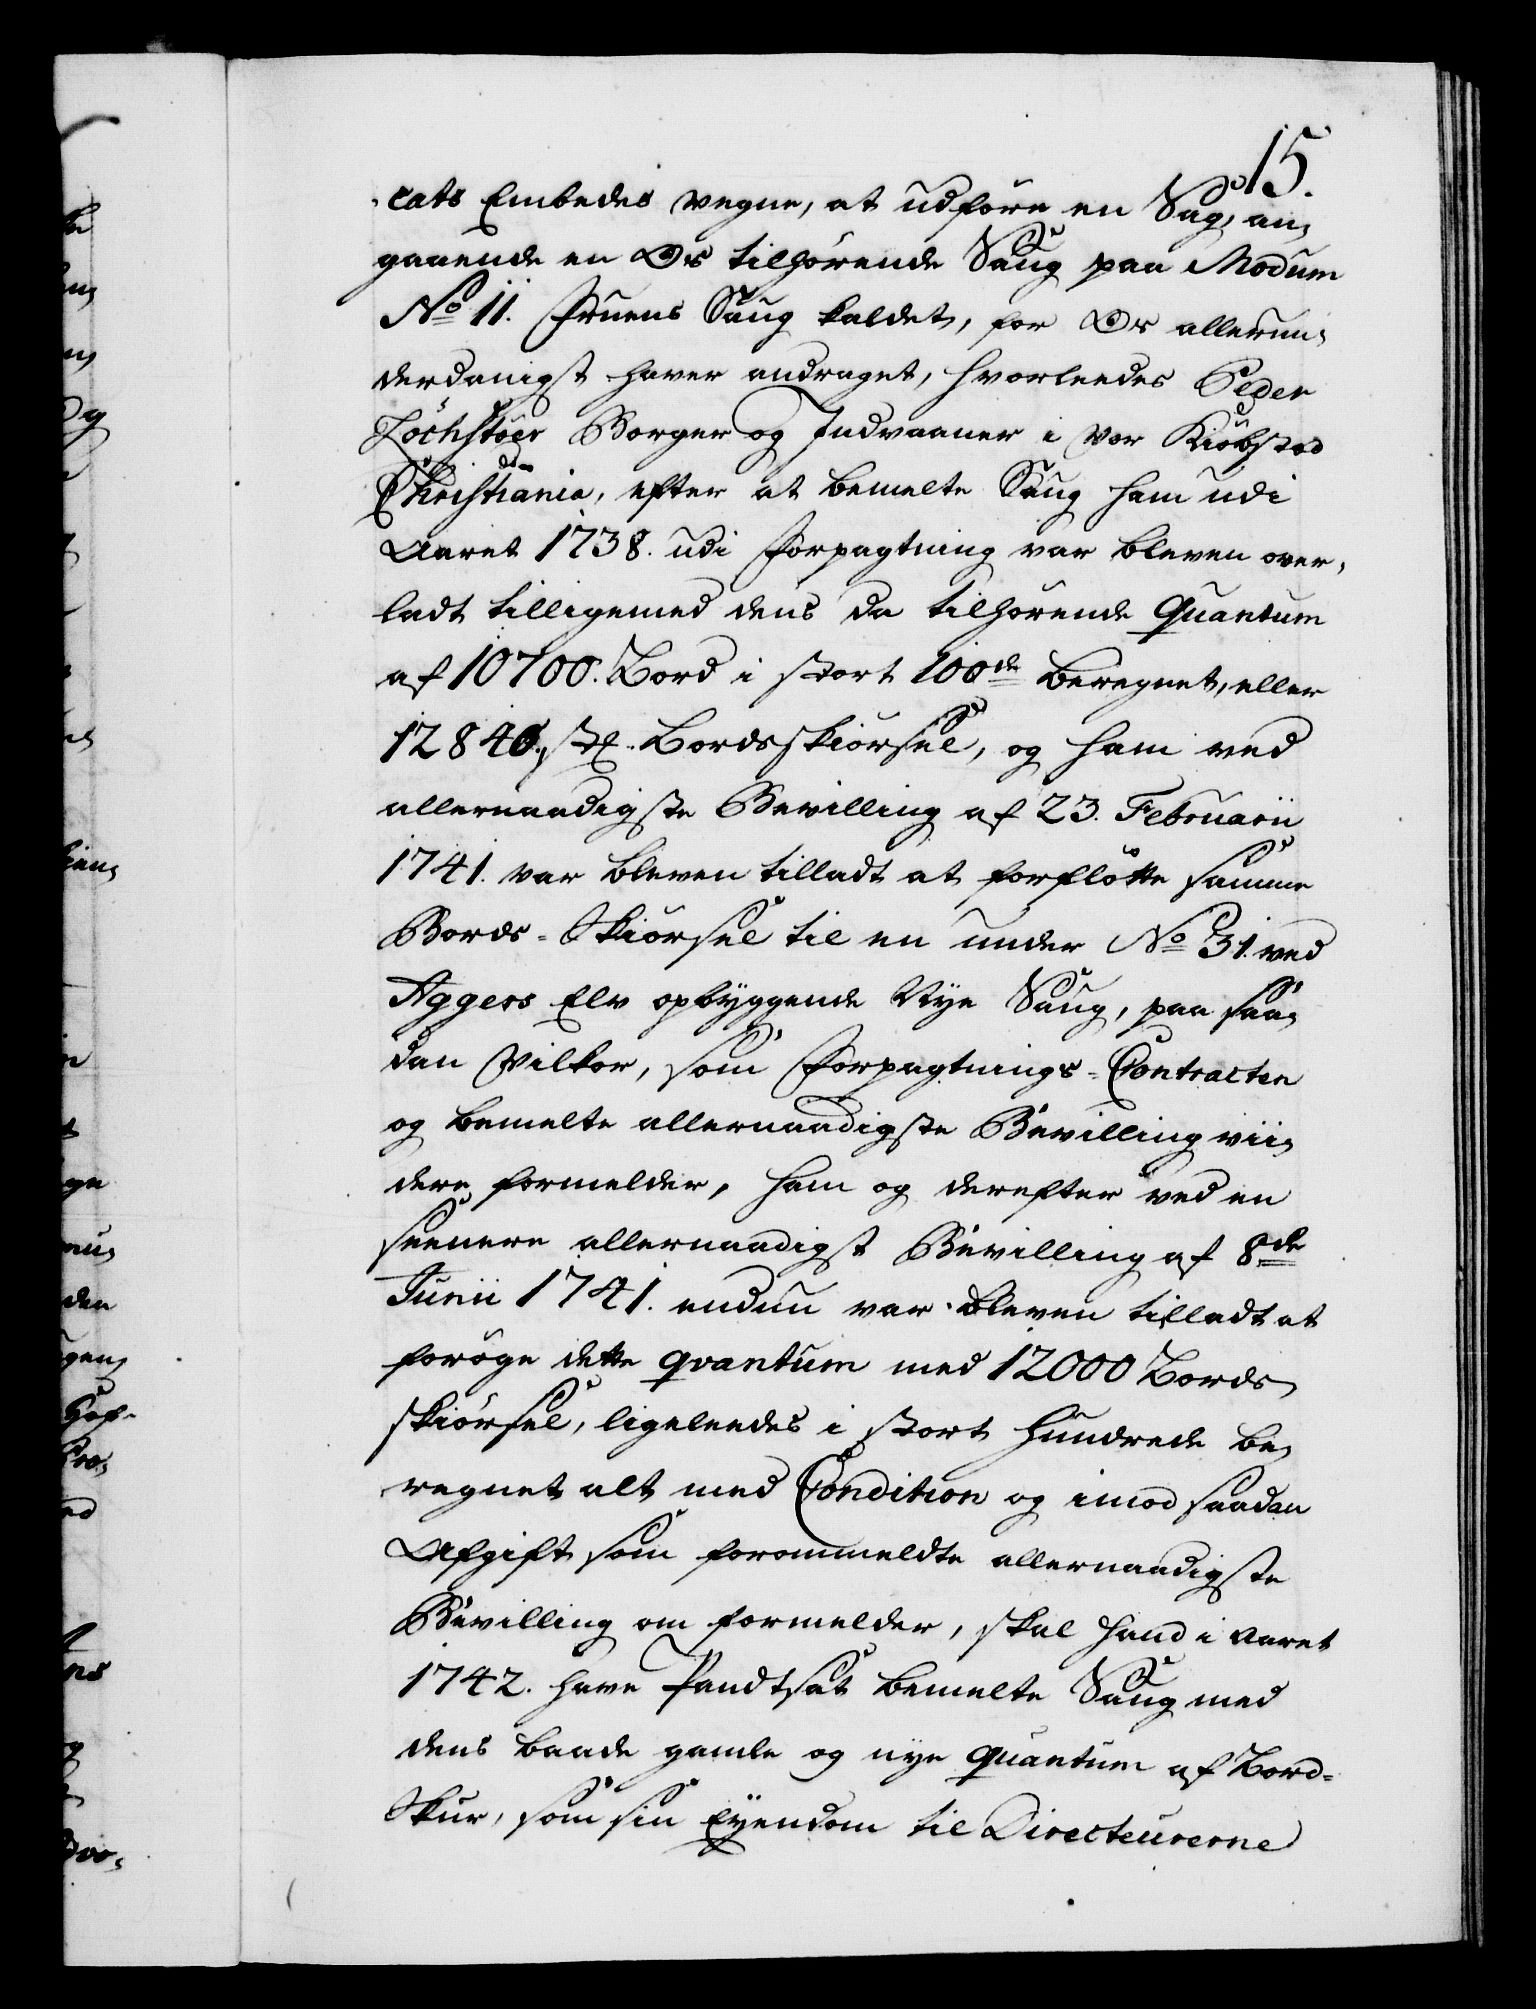 15.
cats Embedes vegne, at udføre en Sag, an,
gaaende en Os tilhørende Saug paa Modum
No 11. Fruens Saug kaldet, for Os allerun,
derdanigst haver andraget, hvorleedes Peder
Löchstöer Borger og Indvaaner i vor Kiöbstæd
Christiania, efter at bemelte Saug ham udi
Aaret 1738. udi Forpagtning var bleven over,
ladt tilligemed dens da tilhørende Quantum
af 10700. Bord i stort 100de beregnet, eller
12840. st. Bordsskiørsel, og ham ved
allernaadigste Bevilling af 23. Februarii
1741. var bleven tilladt at forflötte samme
Bords-Skiørsel til en under No 31. ved
Aggers Elv opbyggende Nye Saug, paa saa,
dan Vilkor, som Forpagtnings-Contracten
og bemelte allernaadigste Bevilling vii,
dere formelder, ham og derefter ved en
seenere allernaadigst Bevilling af 8de
Junii 1741. endnu var bleven tilladt at
forøge dette qvantum med 12000 Bords
skiørsel, ligeleedes i stort Hundrede be,
regnet alt med Condition og imod saadan
Afgift som forommeldte allernaadigste
Bevilling om formelder, skal hand i Aaret
1742. have Pandtsat bemelte Saug med
dens baade gamle og nye quantum af Bord-
Skur, som sin Eyendom til Directeurerne